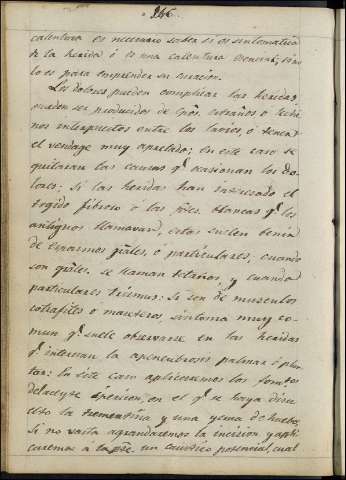 246.
calentura es necesario saber si es sintomatica
de la herida ó es una calentura esencial; si no
lo es para emprender su curacion.
Los dolores pueden complicar las heridas;
pueden ser producidos de cpos. estraños ó lechi-
nos interpuestos entre los lavios, ó tener
el vendage muy apretado; En este caso se
quitaran las causas qe. ocasionan los do-
lores; si las heridas han interesado el
tegido fibroso ó las ptes. blancas qe. los
antiguos llamavan, estas suelen benir
de espasmos grales. ó particulares, cuando
son grales. se llaman tétanos, y cuando
particulares trismus: Si son de musculos
crotafites ó maseteros, sintoma muy co-
mun qe. suele observarse en las heridas
qe. interesan la aponeubrosis palmar ó plan-
tar: En este caso aplicaremos los fomtos.
del aceyte de pericon, en el qe. se haya disu-
elto la trementina y una yema de huebo,
Si no vasta agrandaremos la incision y apli-
caremos á la pte. un caustico potencial, cual